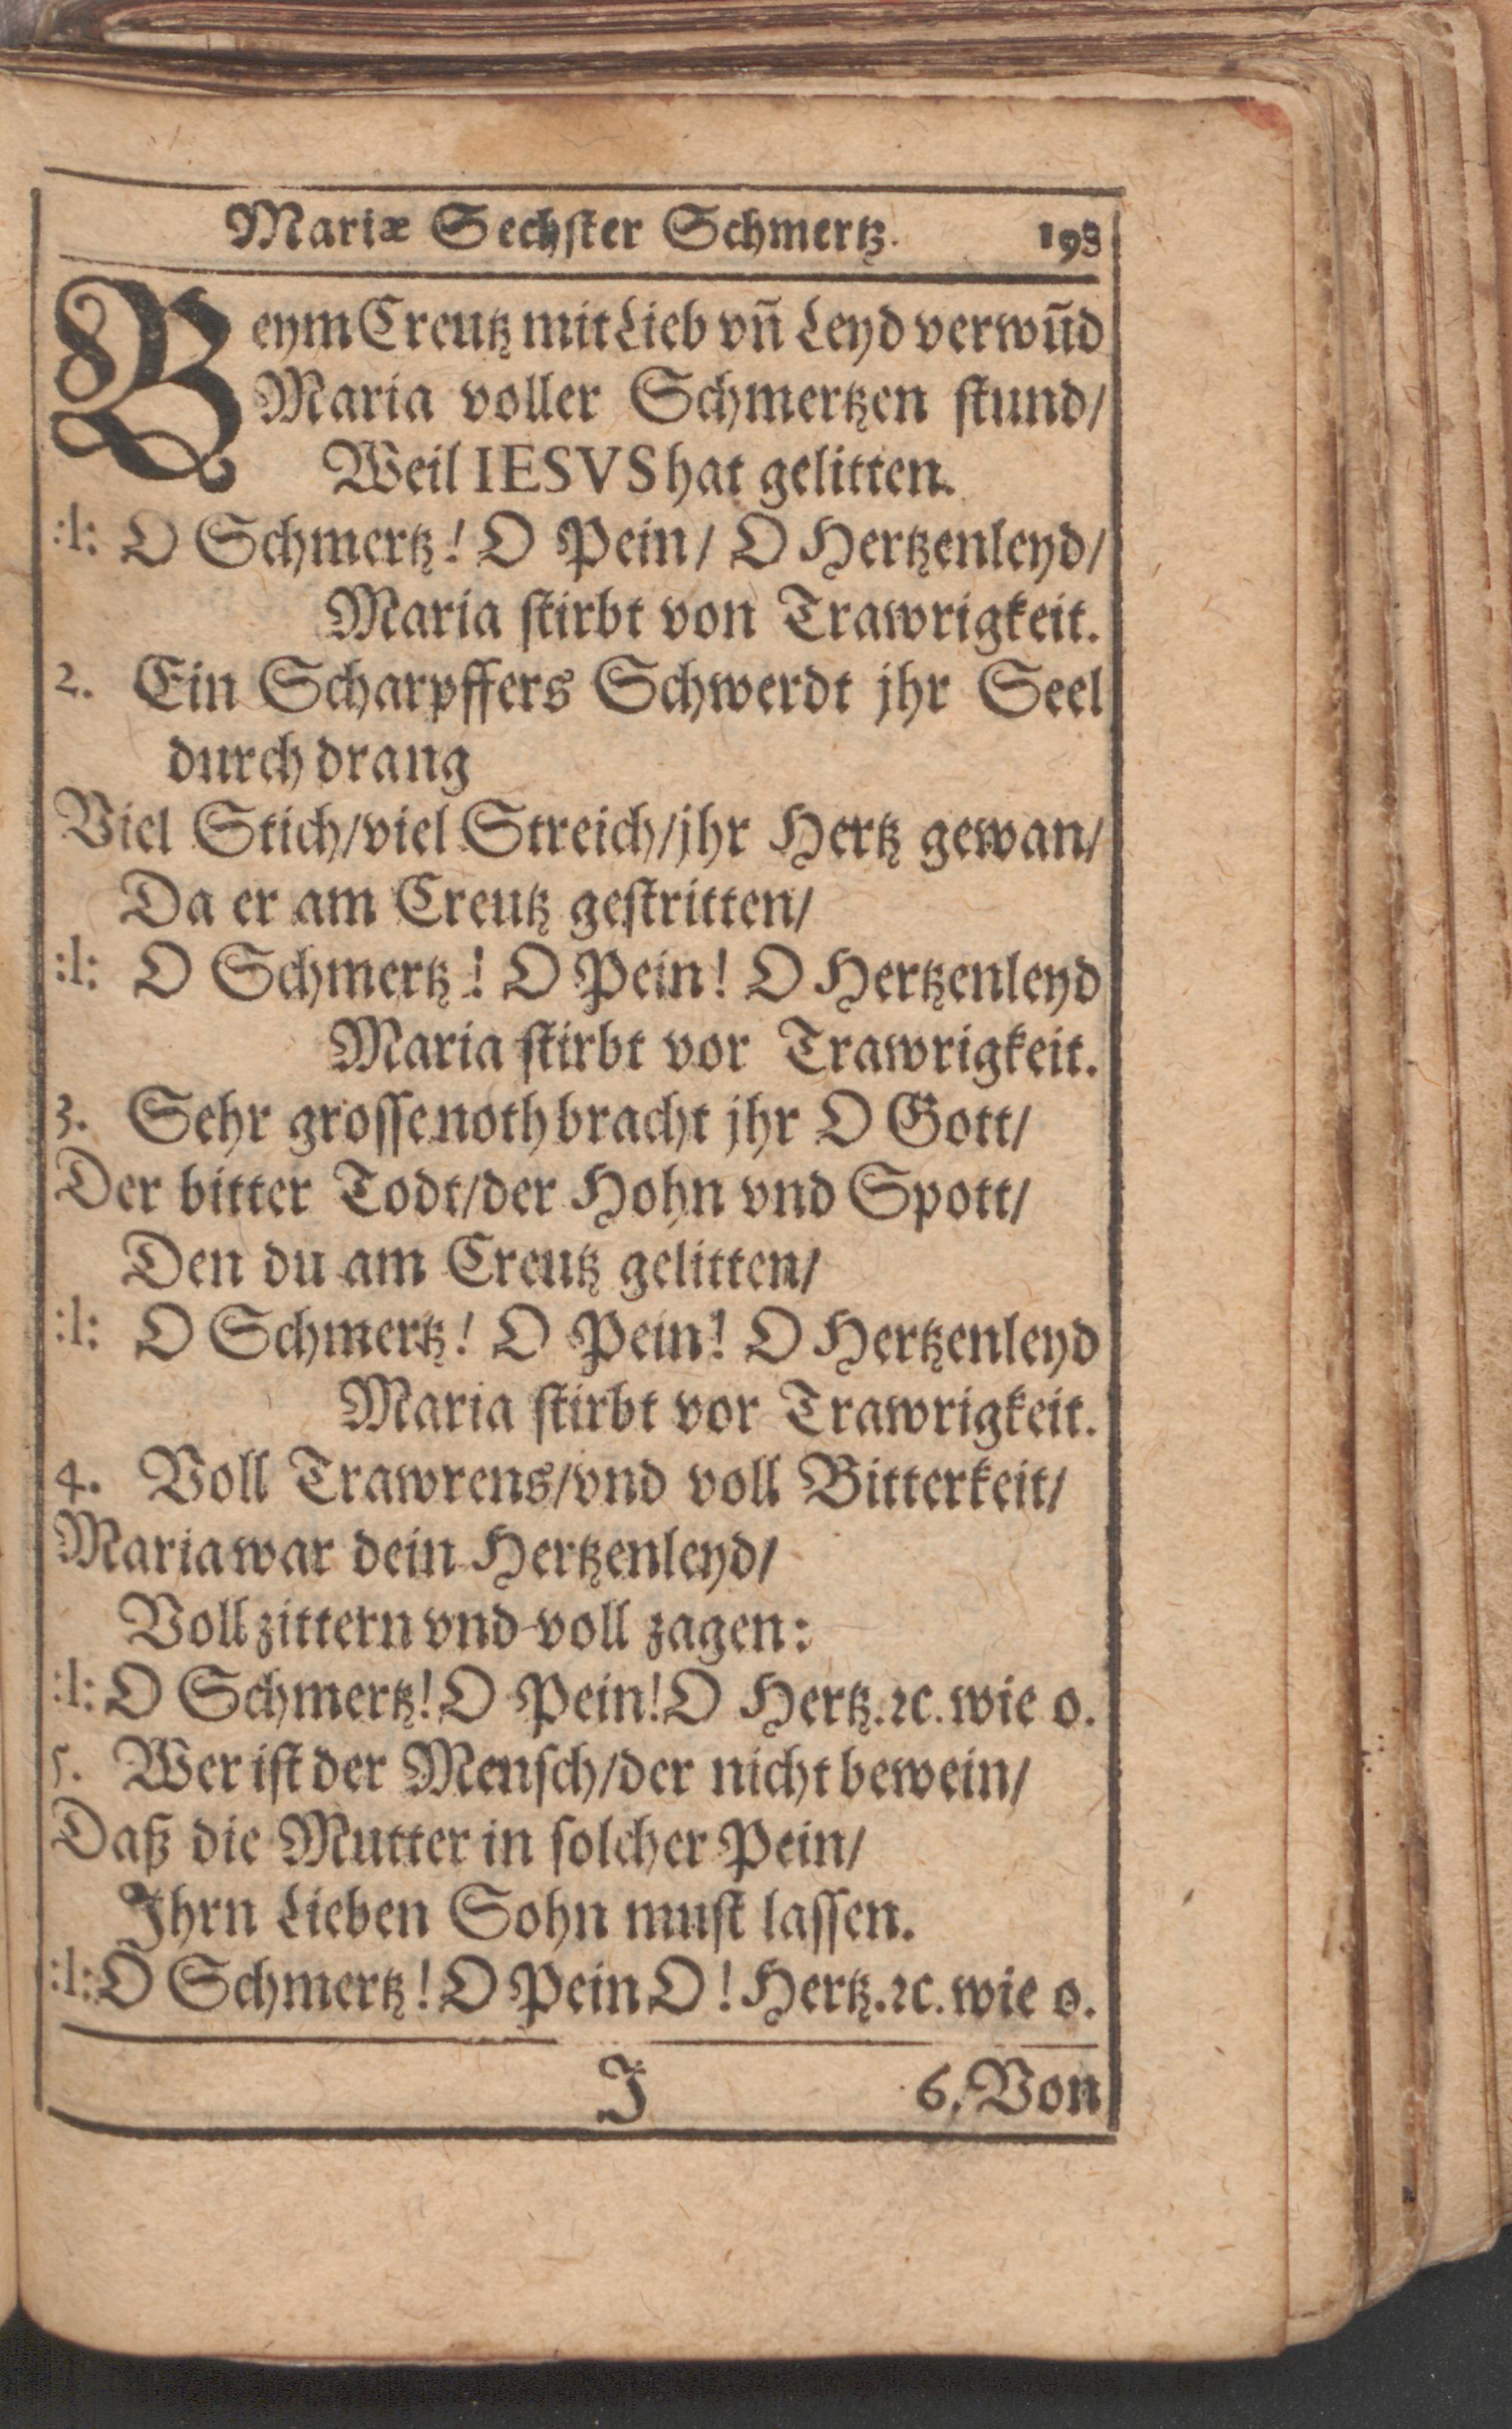 Mariæ Sechſter Schmertz. 193
Beym Creutz mit Lieb vñ Leyd verwũd
Maria voller Schmertzen ſtund/
Weil IESVS hat gelitten.
:|: O Schmertz! O Pein/ O Hertzenleyd/
Maria ſtirbt von Trawrigkeit.
2. Ein Scharpffers Schwerdt jhr Seel
durch drang
Viel Stich/viel Streich/jhr Hertz gewan/
Da er am Creutz geſtritten/
:|: O Schmertz! O Pein! O Hertzenleyd
Maria ſtirbt vor Trawrigkeit.
3. Sehr groſſe noth bracht jhr O Gott/
Der bitter Todt/der Hohn vnd Spott/
Den du am Creutz gelitten/
:|: O Schmertz! O Pein! O Hertzenleyd
Maria ſtirbt vor Trawrigkeit.
4. Voll Trawrens/vnd voll Bitterkeit/
Maria war dein Hertzenleyd/
Voll zittern vnd voll zagen:
:|: O Schmertz! O Pein! O Hertz.ꝛc. wie o.
5. Wer iſt der Menſch/der nicht bewein/
Daß die Mutter in ſolcher Pein/
Ihrn Lieben Sohn muſt laſſen.
:|: O Schmertz! O Pein O! Hertz.ꝛc. wie o.
J 6. Von